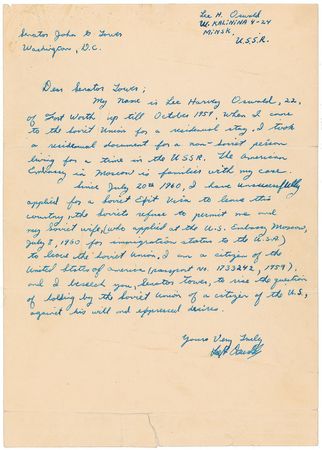 Lee H. Oswald
Senator John G. Tower
U. KALININA 4-24
Washington, D.C.
MINSK,
U.S.S.R.
Dear Senator Tower;
My name is Lee Harvey Oswald, 22,
of Fort Worth up till October 1959, when I came
to the Soviet Union for a residenual stay, I took
a residenual document for a non-Soviet person
living for a time in the USSR. The American
Embassy in Moscow is familier with my case.
Since July 20th 1960, I have unsucessfully
applied for a Soviet Exit Visa to leave this
country, the Soviets refuse to permit me and
my Soviet wife, (who applied at the U.S. Embassy Moscow,
July 8, 1960 for immigration status to the U.S.A.)
to leave the Soviet Union, I am a citizen of the
United States of America (passport No. 1733242, 1959)
and I beseech you, Senator Tower, to rise the question
of holding by the Soviet Union of a citizen of the U.S.,
against his will and expressed desires.
Yours Very Truly
Lee H. Oswald